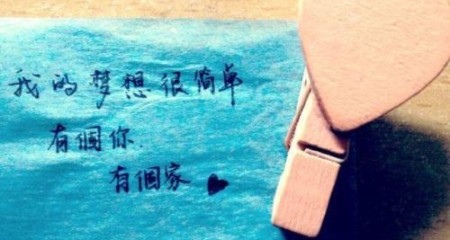 我的梦想很简单
有個你
有個家